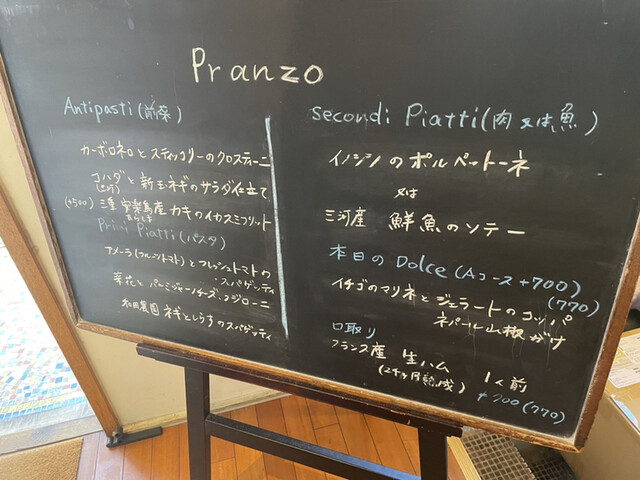 Pranzo
Antipasti (前菜)
カーボロネロとスティッコリーのクロスティーニ
コハダと新玉ネギのサラダ仕立て
(+500) 三重 安楽島産 カキのイカスミフリット
あらしま
Primi Piatti (パスタ)
アメーラ(フルーツトマト)とフレッシュトマトの
・スパゲッティ
菜花とパーミジャーノチーズ・フジローニ
和田農園 ネギとしらすのスパゲッティ
Secondi Piatti (肉又は魚)
イノシシのポルペットーネ
又は
三河産 鮮魚のソテー
本日の Dolce (Aコース +700)
(770)
イチゴのマリネとジェラートのコッパ
ネパール山椒がけ
口取り
フランス産 生ハム 1人前
(24ヶ月熟成) +700 (770)